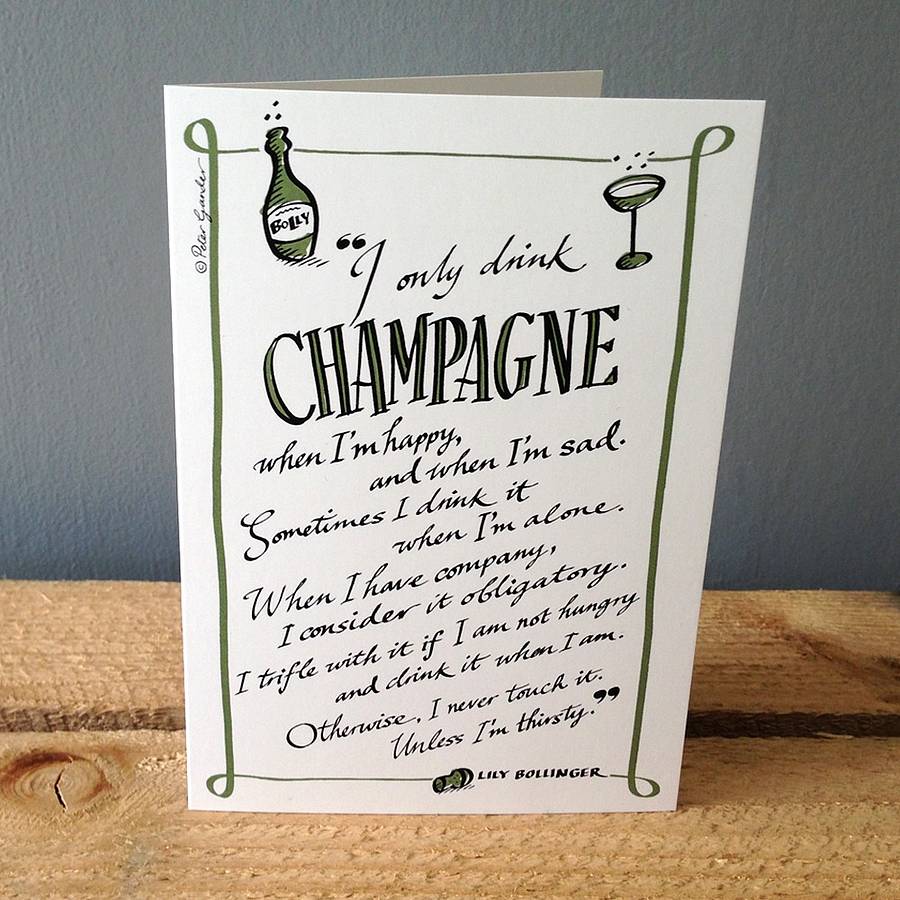 ©Peter Gander
BOLLY
“I only drink
CHAMPAGNE
when I'm happy,
and when I'm sad.
Sometimes I drink it
when I'm alone.
When I have company,
I consider it obligatory.
I trifle with it if I am not hungry
and drink it when I am.
Otherwise, I never touch it.
Unless I'm thirsty.”
LILY BOLLINGER